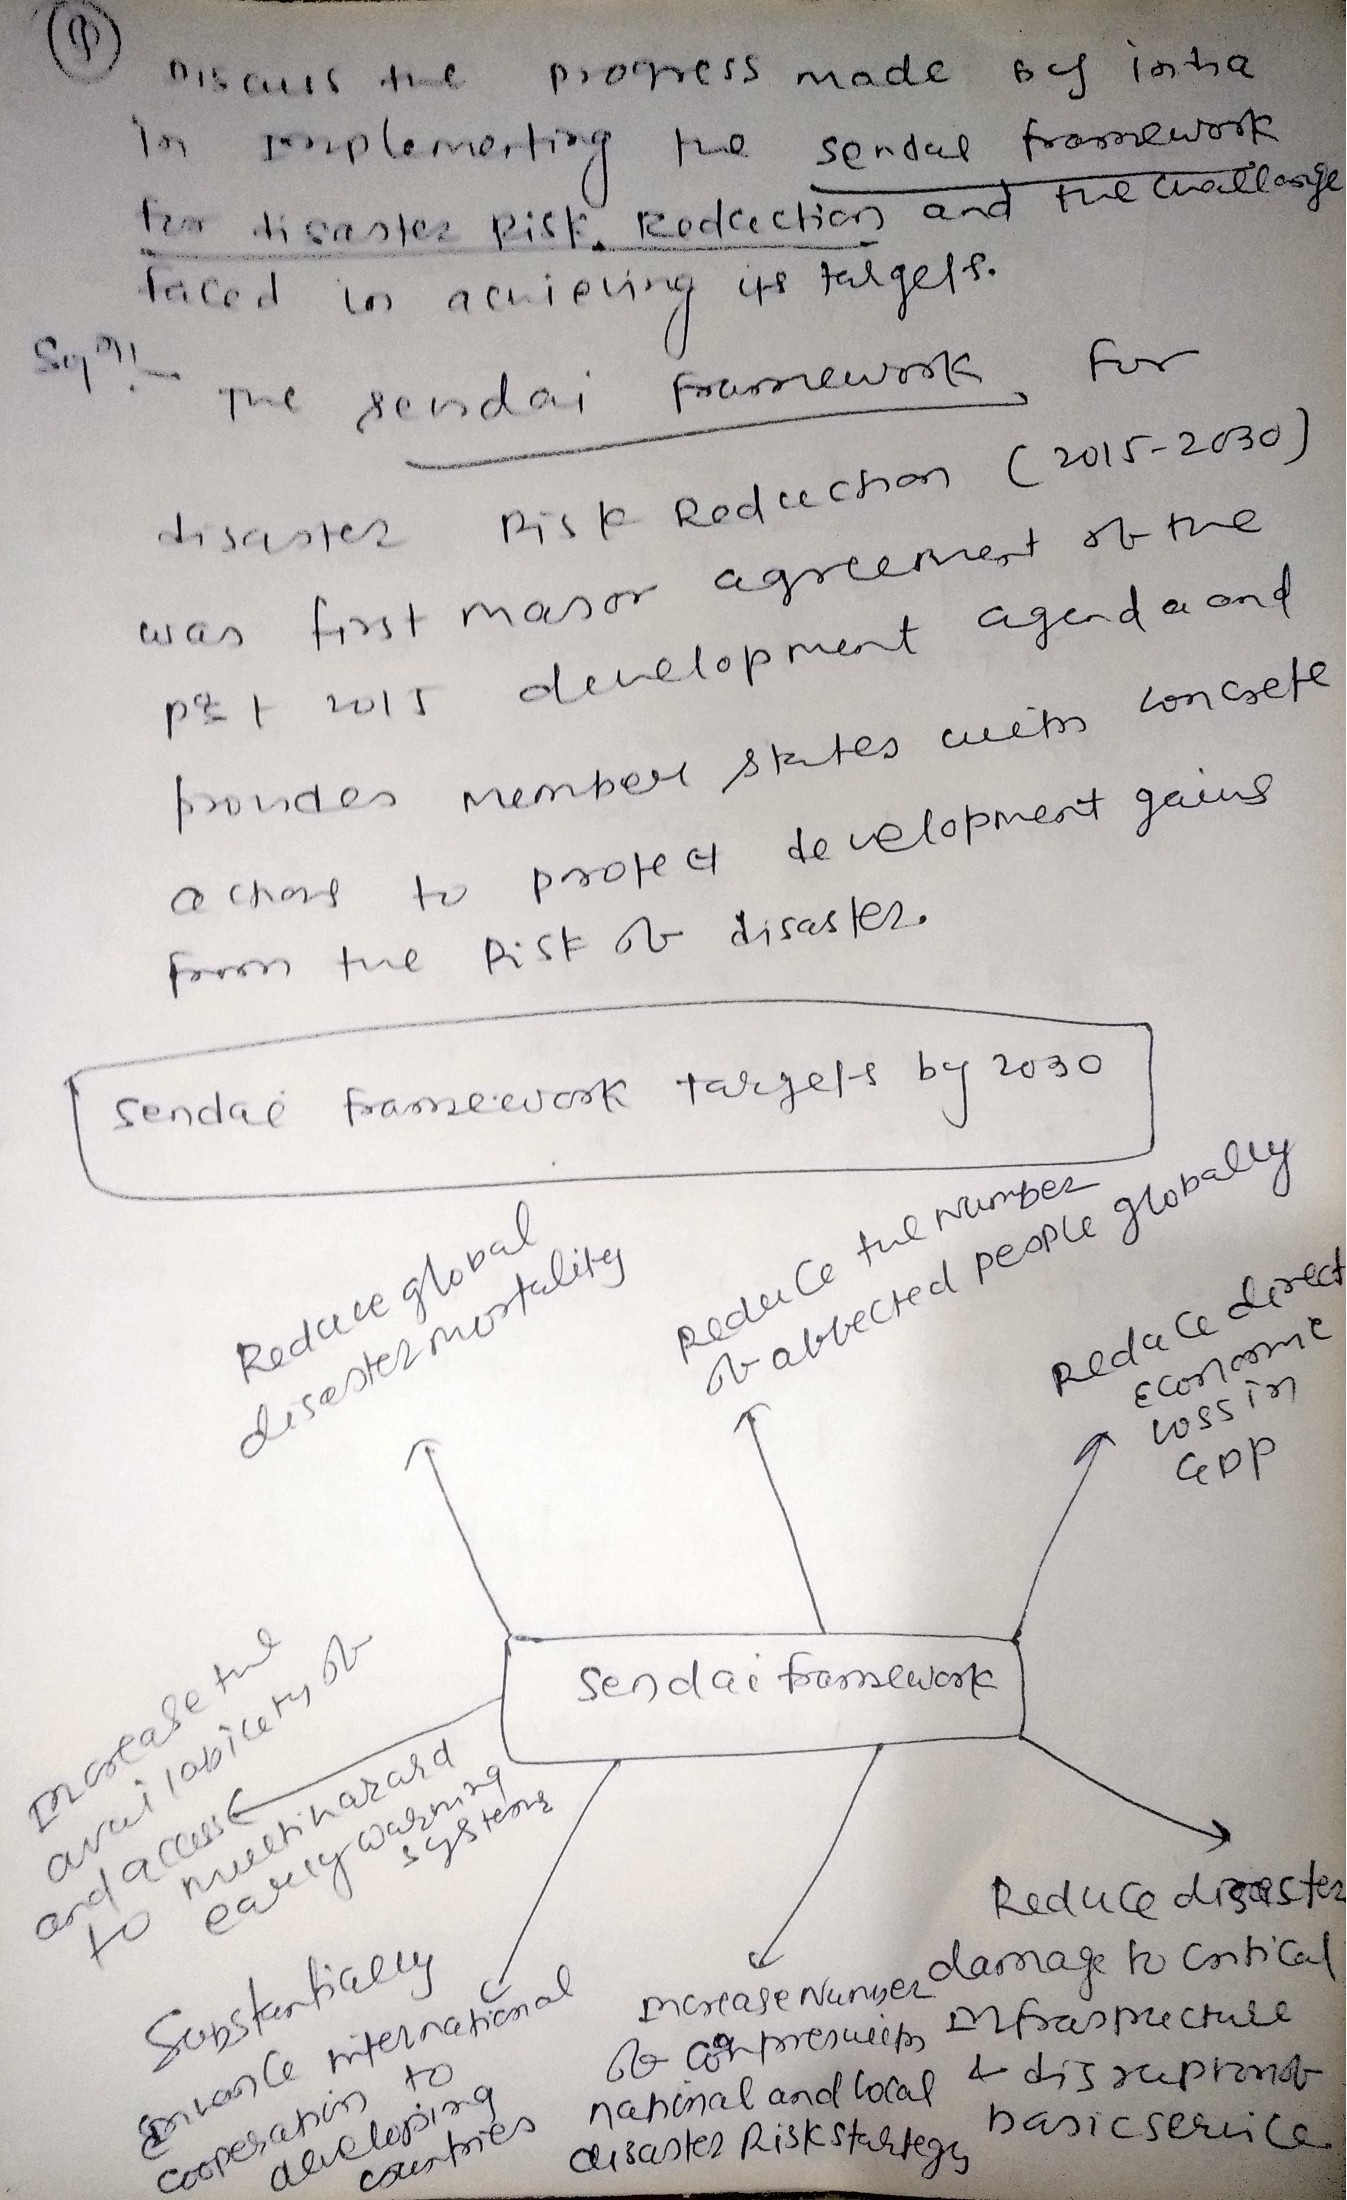 ①
Discuss the progress made by India
in implementing the sendai framework
for disaster Risk Reduction and the challenge
faced in achieving its targets.
Solⁿ:-
The sendai framework for
disaster Risk Reduction (2015-2030)
was first major agreement of the
post 2015 development agenda and
provides member states with concrete
actions to protect development gains
from the Risk of disaster.
Sendai framework targets by 2030
Reduce global
disaster mortality
Reduce the number
of affected people globally
Reduce direct
economic
loss in
GDP
Sendai framework
Increase the
availability of
and access
to multihazard
early warning
systems
Substantially
enhance international
cooperation to
developing
countries
Increase Number
of countries with
national and local
disaster Risk strategy
Reduce disaster
damage to critical
Infrastructure
& disruption of
basic service